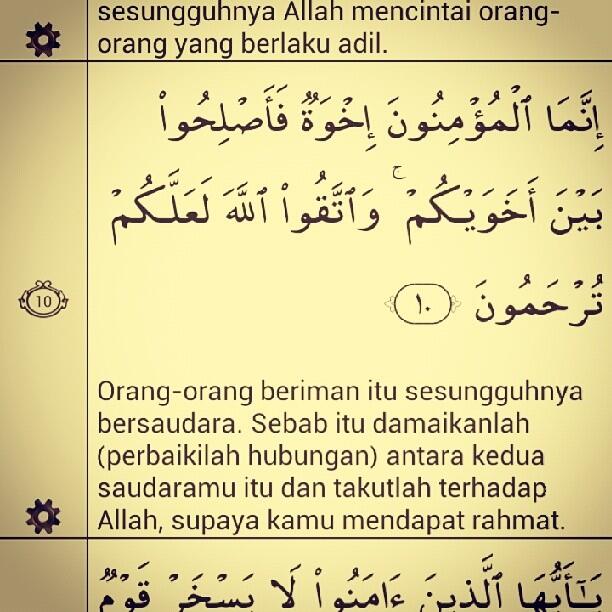 sesungguhnya Allah mencintai orang-
orang yang berlaku adil.
إِنَّمَا ٱلْمُؤْمِنُونَ إِخْوَةٌ فَأَصْلِحُوا۟
بَيْنَ أَخَوَيْكُمْ ۚ وَٱتَّقُوا۟ ٱللَّهَ لَعَلَّكُمْ
تُرْحَمُونَ ١٠
10
Orang-orang beriman itu sesungguhnya
bersaudara. Sebab itu damaikanlah
(perbaikilah hubungan) antara kedua
saudaramu itu dan takutlah terhadap
Allah, supaya kamu mendapat rahmat.
يَـٰٓأَيُّهَا ٱلَّذِينَ ءَامَنُوا۟ لَا يَسْخَرْ قَوْمٌ